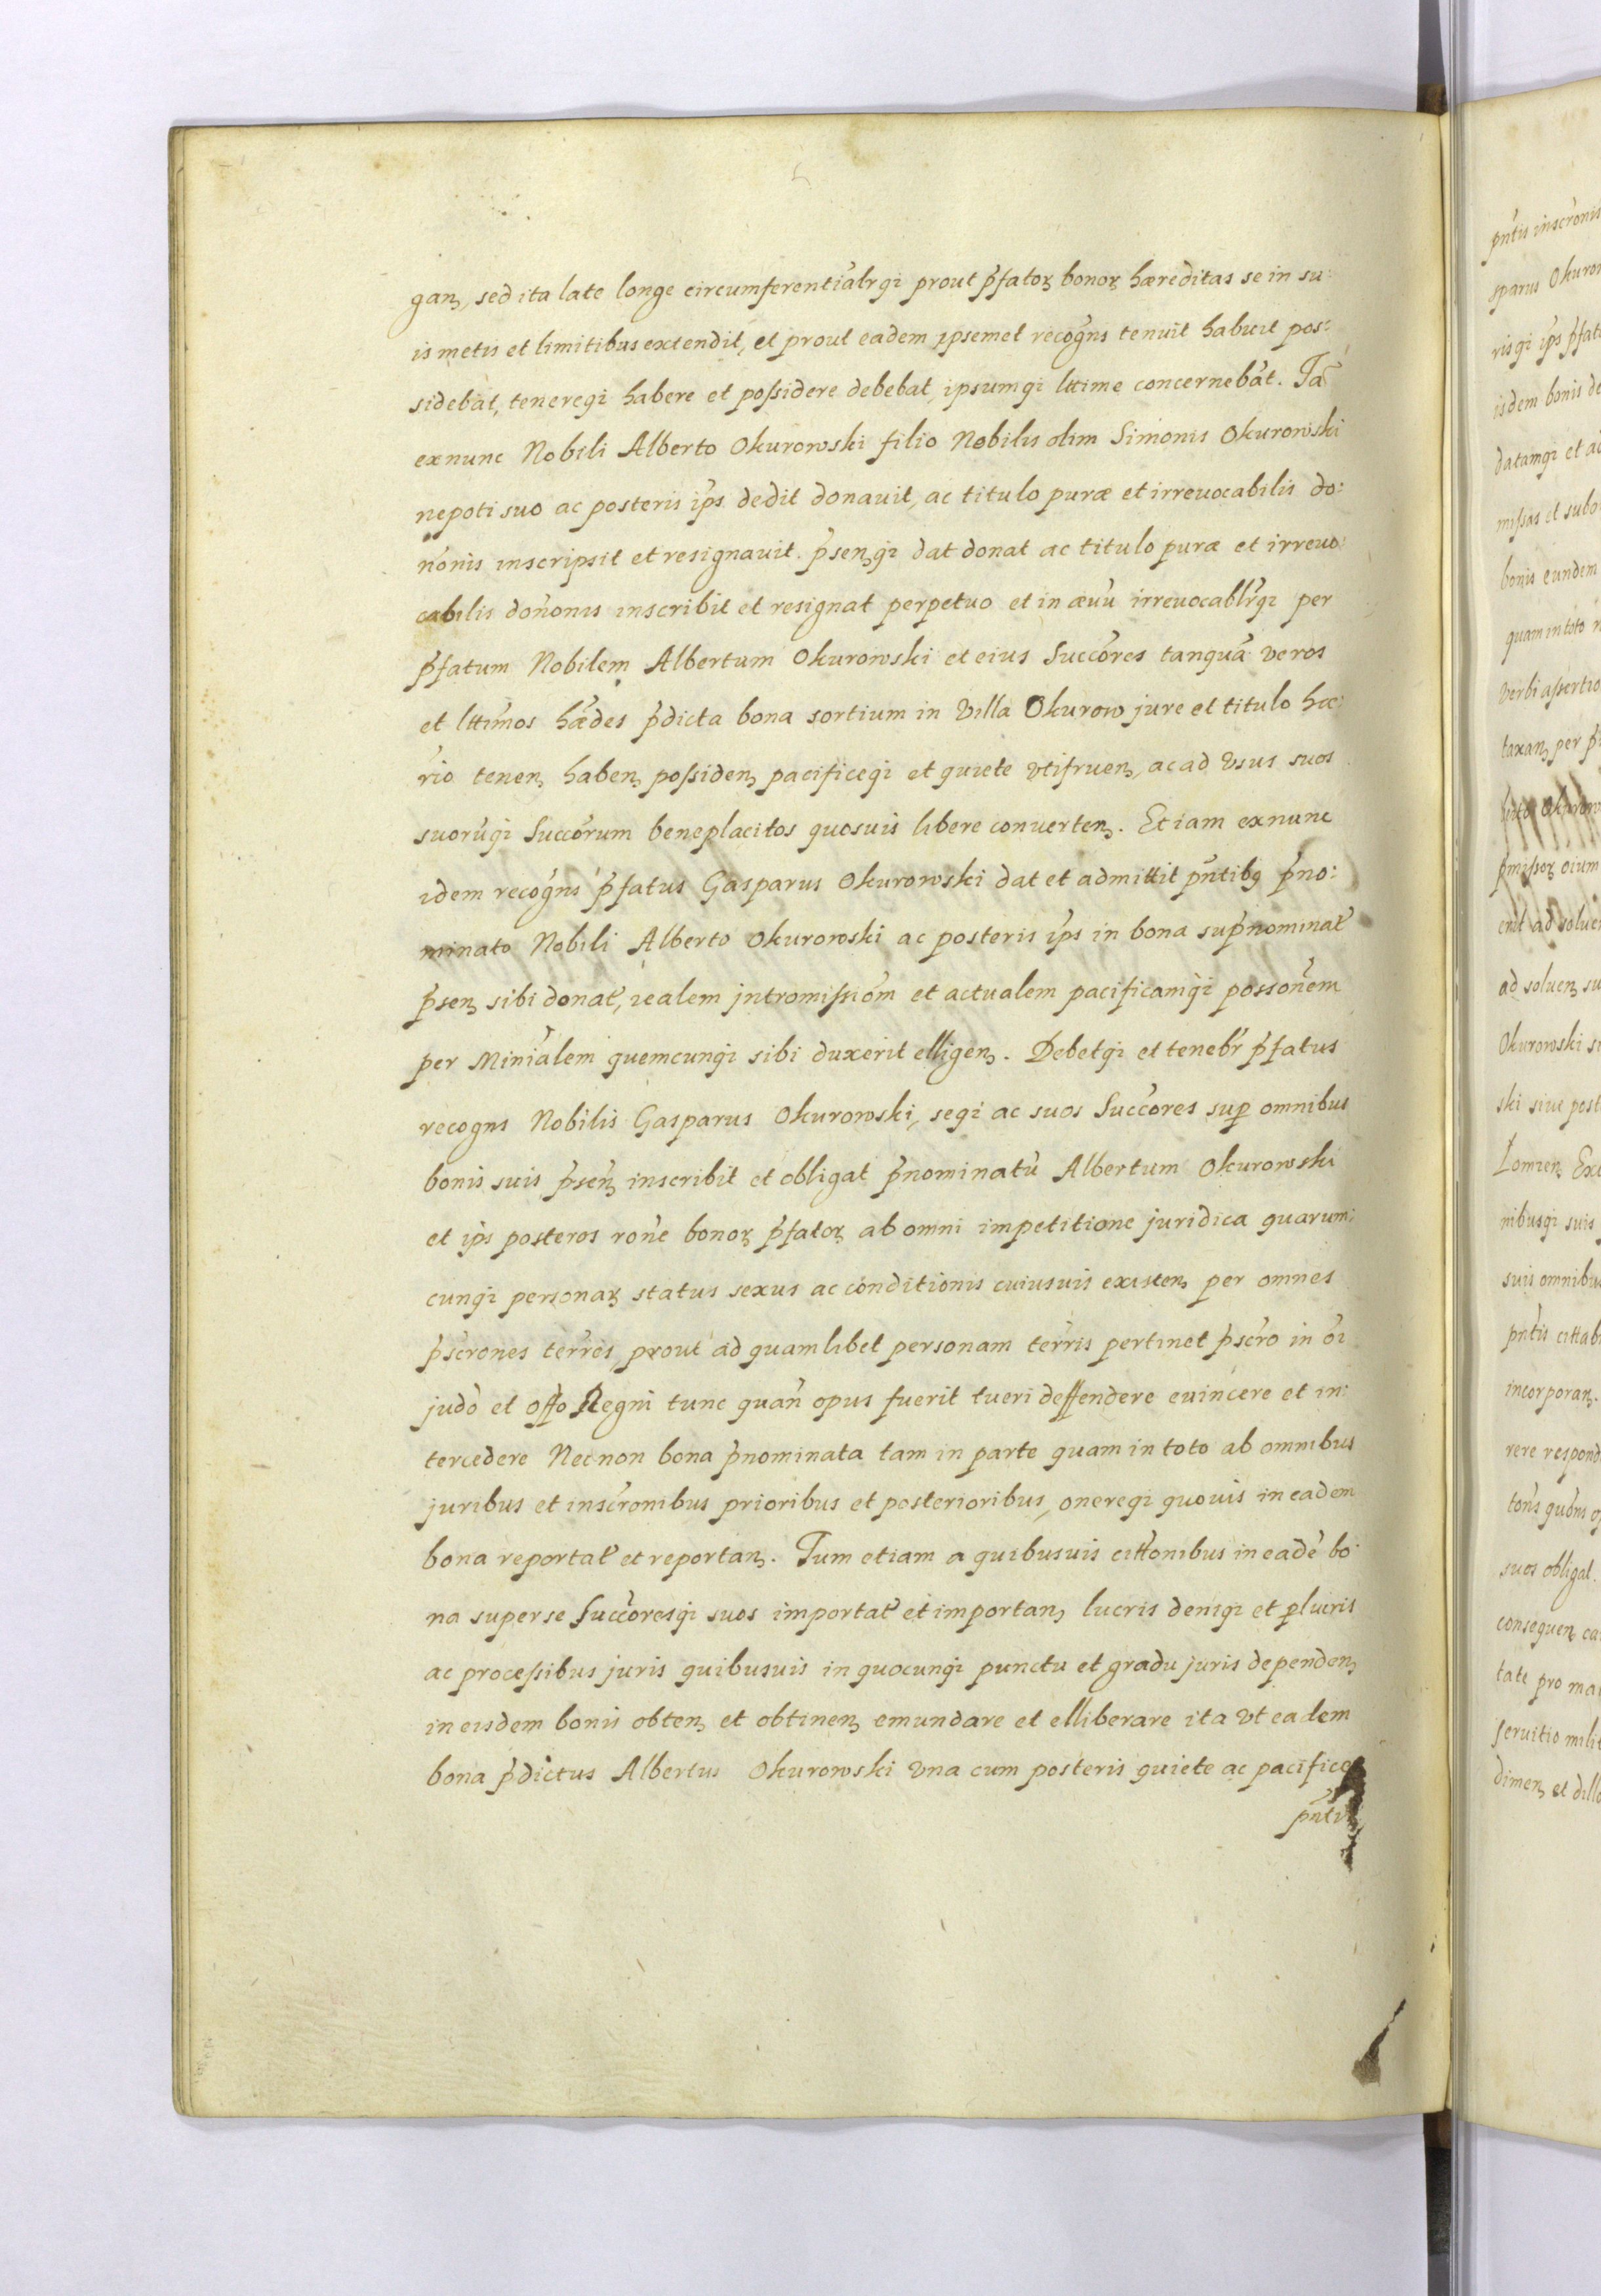 ganʒ, sed ita late longe circumferentiãlrqi prout p̃fatoꝝ bonoꝝ hæreditas se in su:
is metis et limitibus extendit, et prout eadem ipsemet recog̃ns tenuit habuit pos:
sidebat, tenereqi habere et poſsidere debebat, ipsumqi lttime concernebãt. Jã
exnunc Nobili Alberto Okurowski filio Nobilis olim Simonis Okurowski
nepoti suo ac posteris ip̃s dedit donauit, ac titulo puræ et irreuocabilis do:
nõnis inscripsit et resignauit. p̃senʒqi dat donat ac titulo puræ et irreuo:
cabilis doñonis inscribit et resignat perpetuo et in æuũ irreuocablr̃qi per
p̃fatum Nobilem Albertum Okurowski et eius Succõres tanquã veros
et lttim̃os hæ̃des p̃dicta bona sortium in Villa Okurow jure et titulo hæ:
r̃io tenenʒ habenʒ poſsidenʒ pacificeqi et quiete vtifruenʒ, ac ad vsus suos
suorũqi Succõrum beneplacitos quosuis libere conuertenʒ. Et iam exnunc
idem recog̃ns p̃fatus Gasparus Okurowski dat et admittit pñtibꝫ p̃no:
minato Nobili Alberto Okurowski ac posteris ip̃s in bona sup̃nominat̃
p̃senʒ sibi donat̃, realem jntromiſsiõm et actualem pacificamqi possoñem
per Miniãlem quemcunqi sibi duxerit elligenʒ. Debetqi et tenebr̃ p̃fatus
recogns Nobilis Gasparus Okurowski, seqi ac suos Succõres suꝑ omnibus
bonis suis p̃señʒ inscribit et obligat p̃nominatũ Albertum Okurowski
et ip̃s posteros roñe bonoꝝ p̃fatoꝝ ab omni impetitione juridica quarum:
cunqi personaꝝ status sexus ac conditionis cuiusuis existenʒ per omnes
p̃scr̃ones ter̃res, prout ad quamlibet personam ter̃ris pertinet p̃scr̃o in õi
judõ et offo Regni tunc quañ opus fuerit tueri deffendere euincere et in:
tercedere Nec non bona p̃nominata tam in parte quam in toto ab omnibus
juribus et inscr̃onibus prioribus et posterioribus, onereqi quouis in eadem
bona reportat̃ et reportanʒ. Tum etiam a quibusuis cittõnibus in eadẽ bo:
na super se Succõresqi suos importat̃ et importanʒ lucris deniqi et ꝑlucris
ac proceſsibus juris quibusuis in quocunqi punctu et gradu juris dependenʒ
in eisdem bonis obtenʒ et obtinenʒ emundare et elliberare ita vt eadem
bona p̃dictus Albertus Okurowski vna cum posteris quiete ac pacifice
pñtis
pñtis inscr̃onis
sparus Okurow
risqi ip̃s p̃fat
isdem bonis de
datamqi et ac
miſsas et subo
bonis eundem
quam in toto
verbi aſsertio
taxanʒ per p̃
p̃miſsoꝝ oium
erit ad solue
ad soluenʒ su
Okurowski si
ski siue post
Lomzenʒ Exc
nibusqi suis
suis omnibu
pñtis cittab
incorporanʒ.
rere respond
suos obligat.
consequenʒ ca
tate pro ma
Seruitio milit
dimenʒ et dill